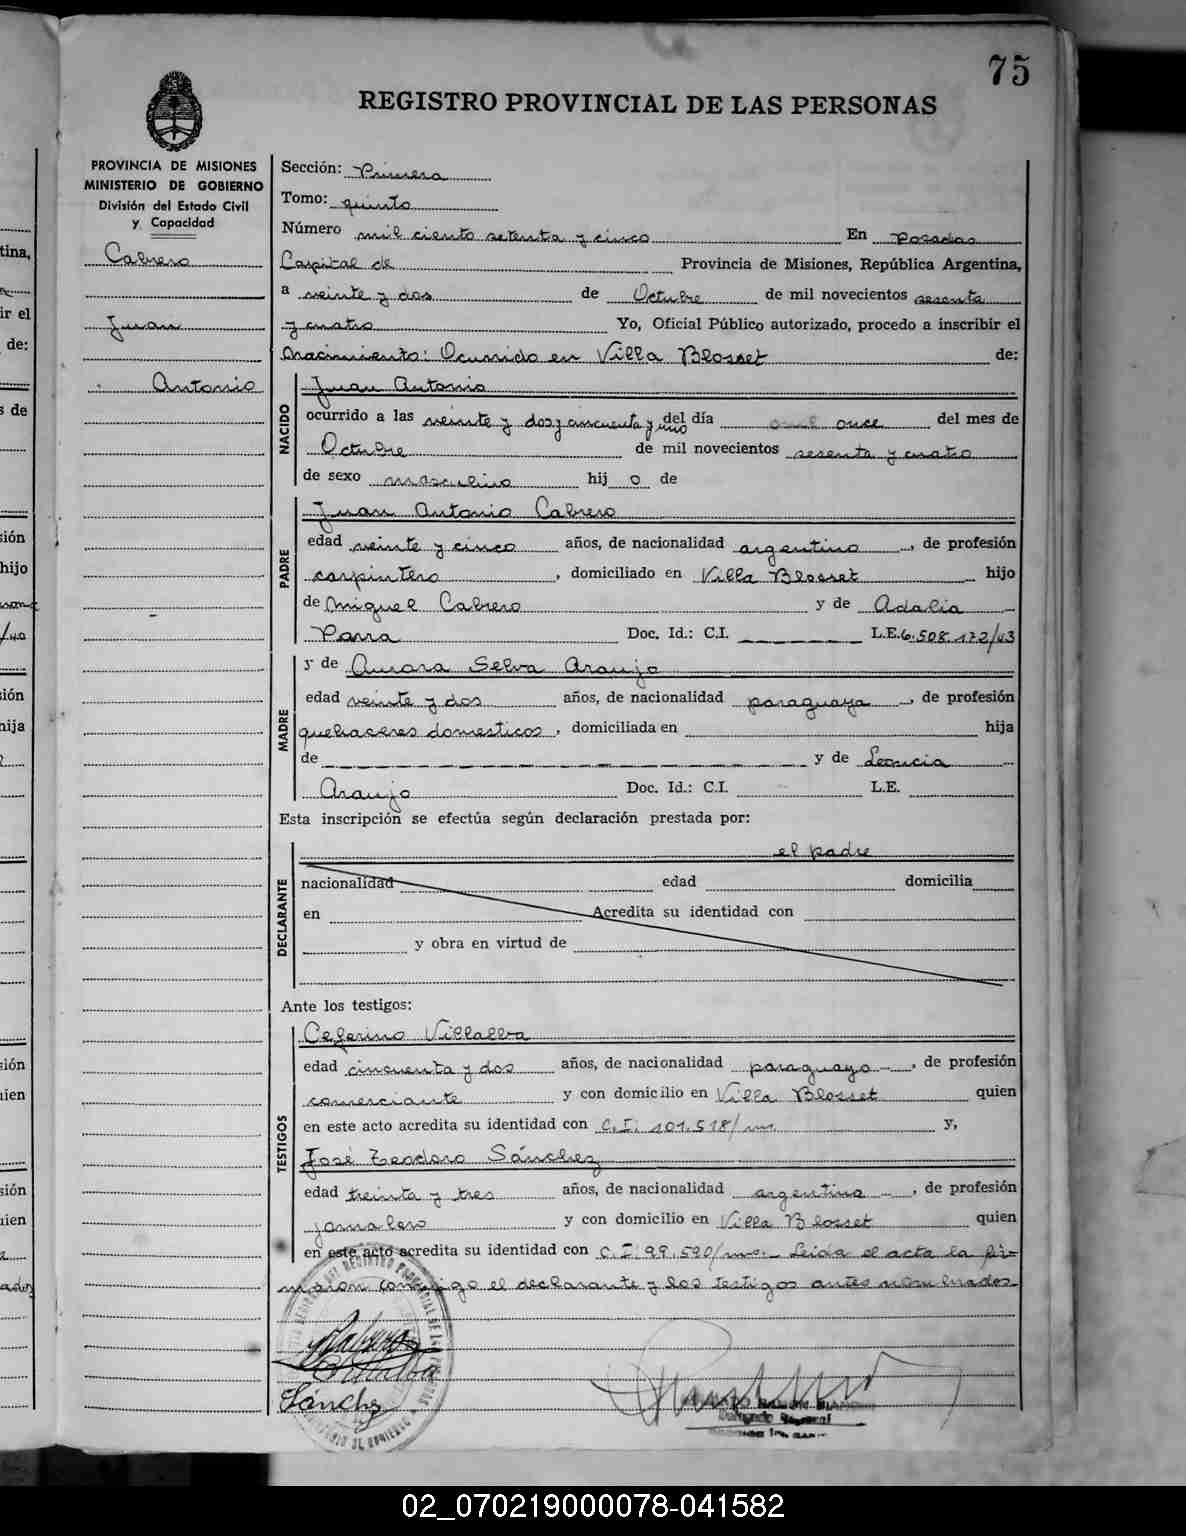 75
REGISTRO PROVINCIAL DE LAS PERSONAS
PROVINCIA DE MISIONES
MINISTERIO DE GOBIERNO
División del Estado Civil
y Capacidad
Cabrero
Juan
Antonio
Sección: Primera
Tomo: quinto
Número mil ciento setenta y cinco En Posadas
Capital de Provincia de Misiones, República Argentina,
a veinte y dos de Octubre de mil novecientos sesenta
y cuatro Yo, Oficial Público autorizado, procedo a inscribir el
nacimiento: Ocurrido en Villa Blosset de:
NACIDO
Juan Antonio
ocurrido a las veinte y dos y cincuenta y uno del día once del mes de
Octubre de mil novecientos sesenta y cuatro
de sexo masculino hij o de
PADRE
Juan Antonio Cabrero
edad veinte y cinco años, de nacionalidad argentino, de profesión
carpintero, domiciliado en Villa Blosset hijo
de Miguel Cabrero y de Adalia
Parra Doc. Id.: C.I. L.E. 6.508.172/43
MADRE
y de Aurora Selva Araujo
edad veinte y dos años, de nacionalidad paraguaya, de profesión
quehaceres domesticos, domiciliada en hija
de y de Leoncia
Araujo Doc. Id.: C.I. L.E.
Esta inscripción se efectúa según declaración prestada por:
DECLARANTE
el padre
nacionalidad edad domicilia
en Acredita su identidad con
y obra en virtud de
Ante los testigos:
TESTIGOS
Ceferino Villalba
edad cincuenta y dos años, de nacionalidad paraguayo, de profesión
comerciante y con domicilio en Villa Blosset quien
en este acto acredita su identidad con C.I. 101.518/m. y,
José Teodoro Sánchez
edad treinta y tres años, de nacionalidad argentina, de profesión
jornalero y con domicilio en Villa Blosset quien
en este acto acredita su identidad con C.I. 99.590/ms. Leida el acta la fir-
maron conmigo el declarante y los testigos antes nombrados
Sánchz
02_070219000078-041582